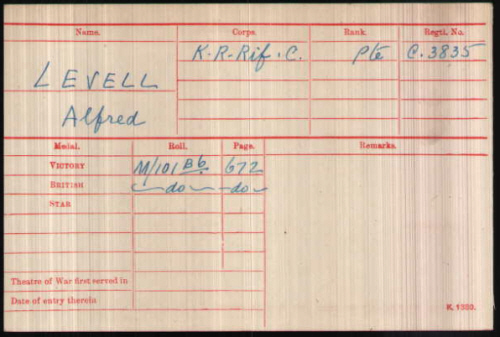 Name. Corps. Rank. Regtl. No.
LEVELL K.R.Rif.C. Pte C.3835
Alfred
Medal. Roll. Page. Remarks.
VICTORY M/101 B6 672
BRITISH do do
STAR
Theatre of War first served in
Date of entry therein
K. 1380.